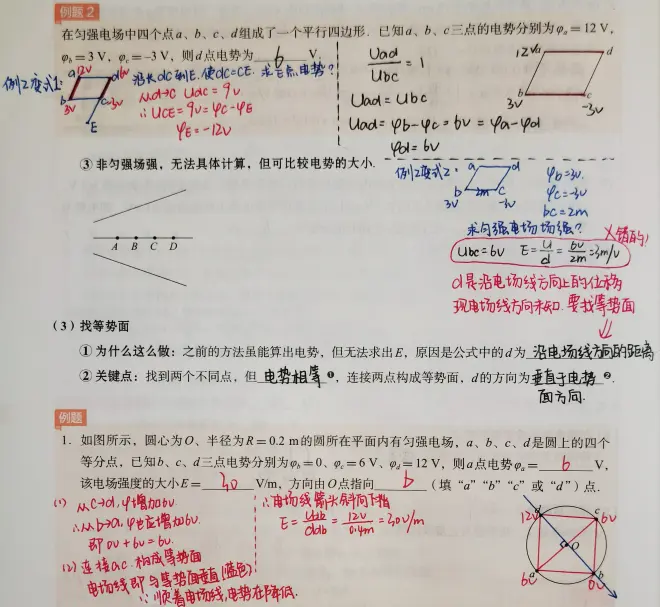 例题2
在匀强电场中四个点a、b、c、d组成了一个平行四边形. 已知a、b、c三点的电势分别为φa=12 V,
φb=3 V, φc=-3 V, 则d点电势为 6 V.
例2变式1:
a 12V d 6V
b 3V c -3V
E
沿长dc到E, 使dc=CE. 求E点电势?
从d→c Udc=9v
∴UCE=9v=φc-φE
φE=-12V
Uad/Ubc=1
Uad=Ubc
Uad=φb-φc=6v=φa-φd
φd=6v
12V a d
3V b c -3V
③ 非匀强场强, 无法具体计算, 但可比较电势的大小.
A B C D
例2变式2:
a d
b 2m c
3V -3V
φb=3v.
φc=-3v
bc=2m
求匀强电场场强?
Ubc=6V E=U/d=6V/2m=3m/v
×错的!
d是沿电场线方向上的位移
现电场线方向未知. 要找等势面
(3) 找等势面
① 为什么这么做: 之前的方法虽能算出电势, 但无法求出E, 原因是公式中的d为 沿电场线方向的距离
② 关键点: 找到两个不同点, 但 电势相等 ❶, 连接两点构成等势面, d的方向为 垂直于电势 ❷.
面方向.
例题
1. 如图所示, 圆心为O、半径为R=0.2 m的圆所在平面内有匀强电场, a、b、c、d是圆上的四个
等分点, 已知b、c、d三点电势分别为φb=0、φc=6 V、φd=12 V, 则a点电势φa= 6 V,
该电场强度的大小E= 30 V/m, 方向由O点指向 b (填“a”“b”“c”或“d”)点.
(1) 从c→d, φ增加6v.
∴从b→a, φ也应增加6v.
即0v+6v=6v.
(2) 连接ac. 构成等势面
电场线即与等势面垂直(蓝色)
∵顺着电场线, 电势在降低.
∴电场线箭头斜向下指
E=Udb/ddb=12V/0.4m=30v/m
12V d c 6V
O
6V a b 0V